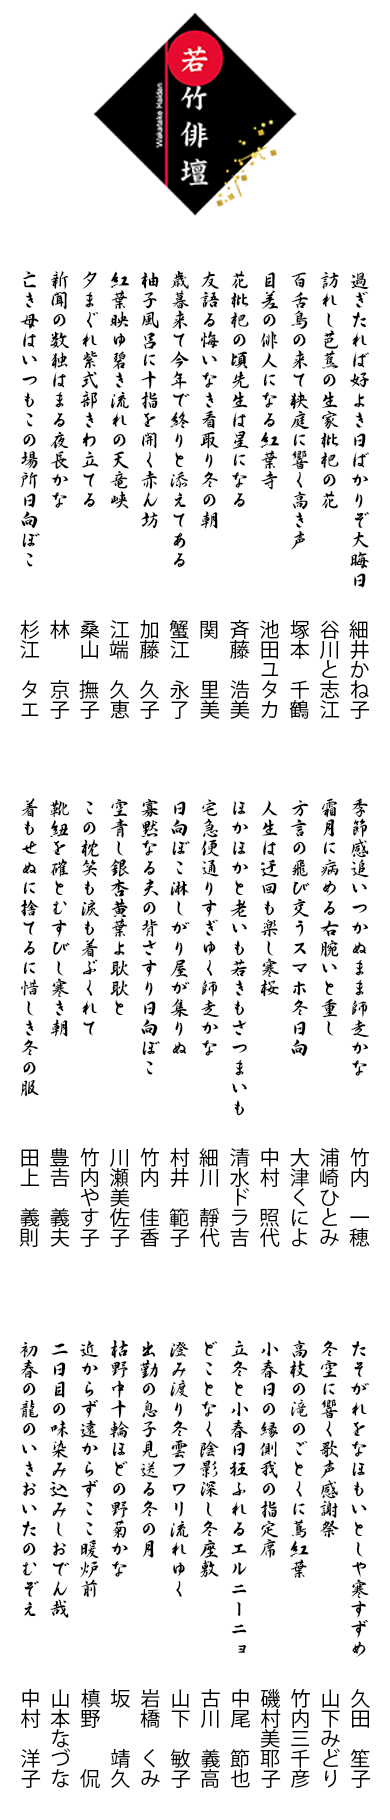 若竹俳壇
Wakatake Haidan
過ぎたれば好よき日ばかりぞ大晦日
細井かね子
訪れし芭蕉の生家枇杷の花
谷川と志江
百舌鳥の来て狭庭に響く高き声
塚本 千鶴
目差の俳人になる紅葉寺
池田ユタカ
花枇杷の頃先生は星になる
斉藤 浩美
友語る悔いなき看取り冬の朝
関 里美
歳暮来て今年で終りと添えてある
蟹江 永了
柚子風呂に十指を開く赤ん坊
加藤 久子
紅葉映ゆ碧き流れの天竜峡
江端 久恵
夕まぐれ紫式部きわ立てる
桑山 撫子
新聞の数独はまる夜長かな
林 京子
亡き母はいつもこの場所日向ぼこ
杉江 タエ
季節感追いつかぬまま師走かな
竹内 一穂
霜月に病める右腕いと重し
浦崎ひとみ
方言の飛び交うスマホ冬日向
大津くによ
人生は迂回も楽し寒桜
中村 照代
ほかほかと老いも若きもさつまいも
清水ドラ吉
宅急便通りすぎゆく師走かな
細川 靜代
日向ぼこ淋しがり屋が集りぬ
村井 範子
寡黙なる夫の背さすり日向ぼこ
竹内 佳香
空青し銀杏黄葉よ耿耿と
川瀬美佐子
この枕笑も涙も着ぶくれて
竹内やす子
靴紐を確とむすびし寒き朝
豊𠮷 義夫
着もせぬに捨てるに惜しき冬の服
田上 義則
たそがれをなほもいとしや寒すずめ
久田 笙子
冬空に響く歌声感謝祭
山下みどり
高枝の滝のごとくに蔦紅葉
竹内三千彦
小春日の縁側我の指定席
磯村美耶子
立冬と小春日狂ふれるエルニーニョ
中尾 節也
どことなく陰影深し冬座敷
古川 義高
澄み渡り冬雲フワリ流れゆく
山下 敏子
出勤の息子見送る冬の月
岩橋 くみ
枯野中十輪ほどの野菊かな
坂 靖久
近からず遠からずここ暖炉前
槙野 侃
二日目の味染み込みしおでん哉
山本なづな
初春の龍のいきおいたのむぞえ
中村 洋子